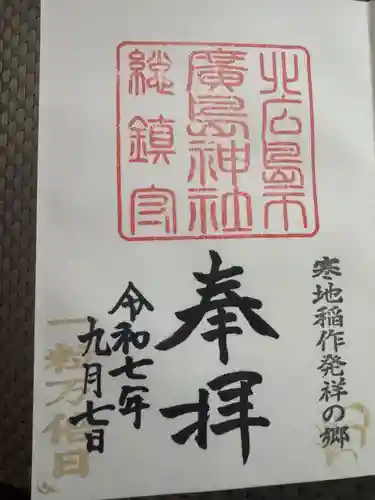 北広島市
廣島神社
総鎮守
寒地稲作発祥の郷
奉拝
令和七年
九月七日
一粒万倍日